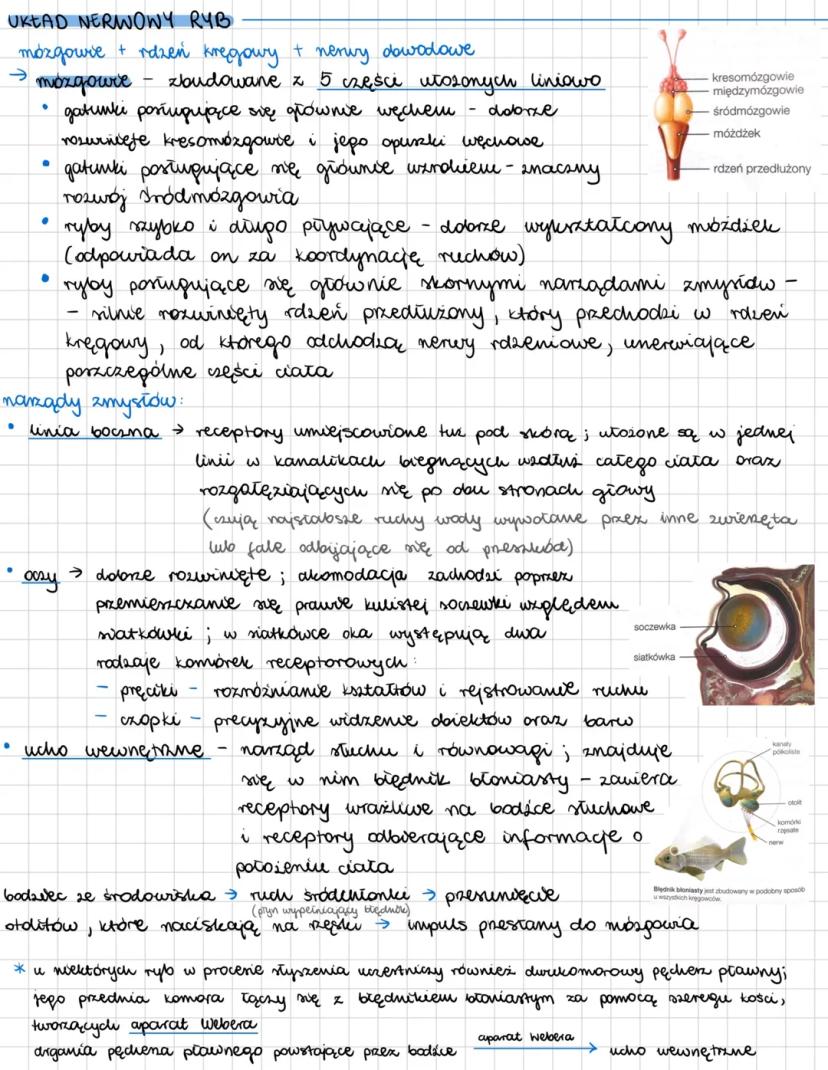 UKŁAD NERWOWY RYB
mózgowie + rdzeń kręgowy + nerwy obwodowe
→ mózgowie - zbudowane z 5 części ułożonych liniowo
• gatunki posługujące się głównie węchem - dobrze
rozwinięte kresomózgowie i jego opuszki węchowe
• gatunki posługujące się głównie wzrokiem - znaczny
rozwój śródmózgowia
• ryby szybko i długo pływające - dobrze wykształcony móżdżek
(odpowiada on za koordynację ruchów)
• ryby posługujące się głównie skórnymi narządami zmysłów -
- silnie rozwinięty rdzeń przedłużony, który przechodzi w rdzeń
kręgowy, od którego odchodzą nerwy rdzeniowe, unerwiające
poszczególne części ciała
kresomózgowie
międzymózgowie
śródmózgowie
móżdżek
rdzeń przedłużony
narządy zmysłów:
• linia boczna → receptory umiejscowione tuż pod skórą; ułożone są w jednej
linii w kanalikach biegnących wzdłuż całego ciała oraz
rozgałęziających się po obu stronach głowy
(czują najsłabsze ruchy wody wywołane przez inne zwierzęta
lub fale odbijające się od przeszkód)
• oczy → dobrze rozwinięte; akomodacja zachodzi poprzez
przemieszczanie się prawie kulistej soczewki względem
siatkówki; w siatkówce oka występują dwa
rodzaje komórek receptorowych:
- pręciki - rozróżnianie kształtów i rejstrowanie ruchu
- czopki - precyzyjne widzenie obiektów oraz barw
soczewka
siatkówka
• ucho wewnętrzne - narząd słuchu i równowagi; znajduje
się w nim błędnik błoniasty - zawiera
receptory wrażliwe na bodźce słuchowe
i receptory odbierające informacje o
położeniu ciała
kanały
półkoliste
otolit
komórki
rzęsate
nerw
Błędnik błoniasty jest zbudowany w podobny sposób
u wszystkich kręgowców.
bodziec ze środowiska → ruch śródchłonki → przesunięcie
(płyn wypełniający błędnik)
otolitów, które naciskają na rzęski → impuls przesłany do mózgowia
* u niektórych ryb w procesie słyszenia uczestniczy również dwukomorowy pęcherz pławny;
jego przednia komora łączy się z błędnikiem błoniastym za pomocą szeregu kości,
tworzących aparat Webera
drgania pęcherza pławnego powstające przez bodźce aparat Webera → ucho wewnętrzne